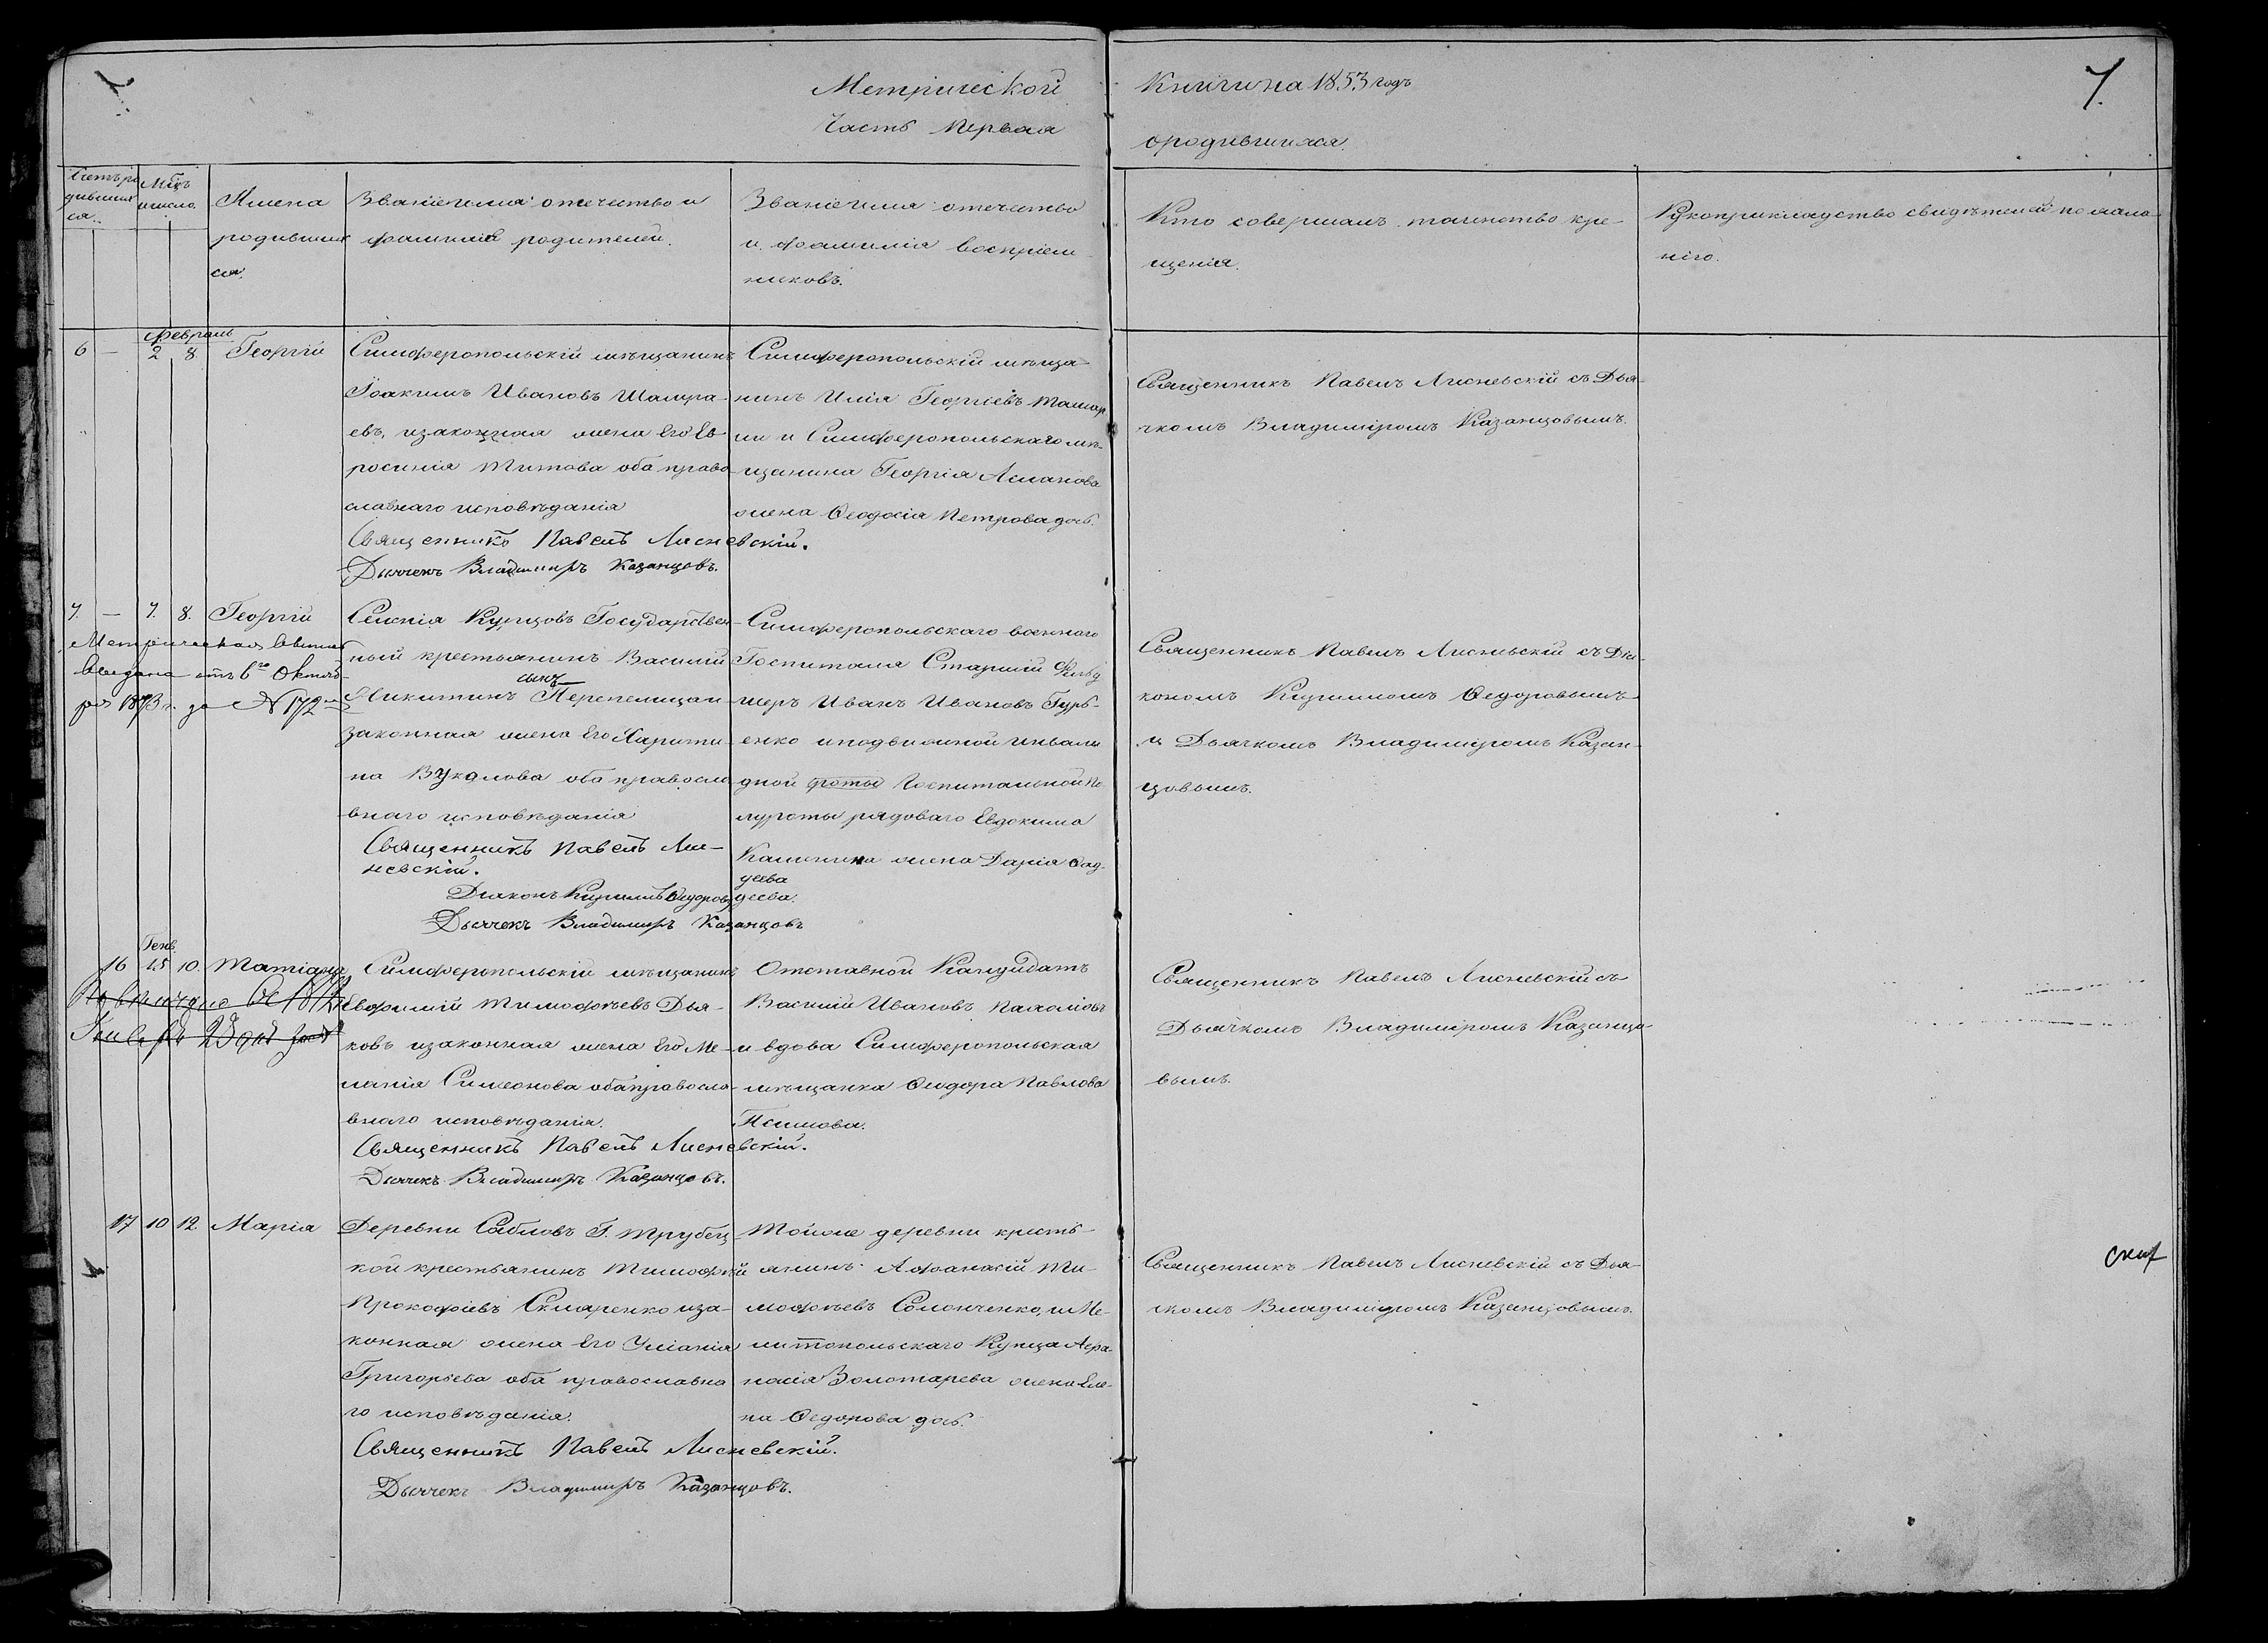 Метрической
Часть Первая
Книги на 1853 годъ
о родившихся.
7.
Счетъ ро
дивших
ся.
Мѣсъ
и число.
Имена
родивших
ся.
Званіе имя отечество и
фамилія родителей.
Званіе имя отечество
и фамилія воспріем
никовъ.
Кто совершалъ таинство кре-
щенія.
Рукоприкладство свидѣтелей по жела-
нію.
февраль
6 — 2 8. Георгій
Симферопольскій мѣщанинъ
Іоакимъ Ивановъ Шапра-
евъ, и законная жена Его Ев-
росинія Титова оба право-
славнаго исповѣданія
Священникъ Павелъ Лисневскій.
Дьячекъ Владимиръ Казанцовъ.
Симферопольскій мѣща-
нинъ Илія Георгіевъ
и Симферопольскаго мѣ-
щанина Георгія Асланова
жена Ѳеодосія Петрова дочь.
Священникъ Павелъ Лисневскій съ Дья-
чкомъ Владиміромъ Казанцовымъ.
7. — 7. 8. Георгій
Метрическая
выдана отъ 6го Октяб-
ря 1873 г. за № 172
Селенія Курцовъ Государствен-
ный крестьянинъ Василій
сынъ
Никитинъ Перепелица и
законная жена Его Харити-
на Вуколова оба правосла-
внаго исповѣданія
Священникъ Павелъ Лис-
невскій.
Діаконъ Кириллъ Ѳедоровъ
Дьячекъ Владимиръ Казанцовъ
Симферопольскаго военнаго
Госпиталя Старшій Фельд
шеръ Иванъ Ивановъ Гурь-
енко и подвижной инвали
дной роты Госпитальной По
луроты рядоваго Евдокима
Калинина жена Дарія Ѳад-
деева
деева.
Священникъ Павелъ Лисневскій съ Діа-
кономъ Кирилломъ Ѳедоровымъ
и Дьячкомъ Владиміромъ Казан-
цовымъ.
Генв.
16 15 10. Татіана
Симферопольскій мѣщанинъ
Евфимій Тимофѣевъ Дья-
ковъ и законная жена Его Ме-
ланія Симеонова оба правосла-
внаго исповѣданія.
Священникъ Павелъ Лисневскій.
Дьячекъ Владимиръ Казанцовъ.
Отставной Кандидатъ
Василій Ивановъ Пахомовъ
и вдова Симферопольская
мѣщанка Ѳеодора Павлова
Священникъ Павелъ Лисневскій съ
Дьячкомъ Владиміромъ Казанцо-
вымъ.
17 10 12 Марія
Деревни Сабловъ Г. Трубец
кой крестьянинъ Тимофѣй
Прокофіевъ Скляренко и за-
конная жена Его Уліанія
Григорьева оба православна
го исповѣданія.
Священникъ Павелъ Лисневскій.
Дьячекъ Владимиръ Казанцовъ.
Той же деревни кресть-
янинъ Афанасій Ти-
мофѣевъ Солонченко, и Ме-
литопольскаго Купца Афа-
насія Золотарева жена Еле-
на Ѳедорова дочь.
Священникъ Павелъ Лисневскій съ Дья-
чкомъ Владиміромъ Казанцовымъ.